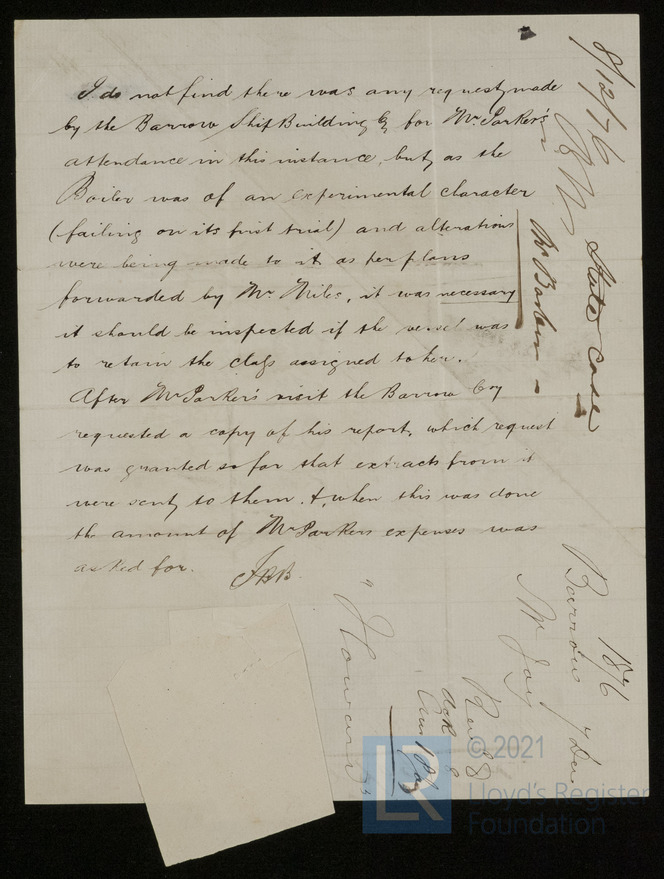 I do not find there was any request made
by the Barrow Ship Building Co for Mr Parker's
attendance in this instance, but, as the
Boiler was of an experimental character
(failing on its first trial) and alterations
were being made to it as per plans
forwarded by Mr Miles, it was necessary
it should be inspected if the vessel was
to retain the class assigned to her.
After Mr Parker's visit the Barrow Coy
requested a copy of his report, which request
was granted so far that extracts from it
were sent to them, &, when this was done
the amount of Mr Parkers expenses was
asked for.
8/12/76
State Case
Mr
1876
Barrow 7 Dec
Mr Jay
Recd 8
"Howard"
© 2021
Lloyd's Register
Foundation
LR